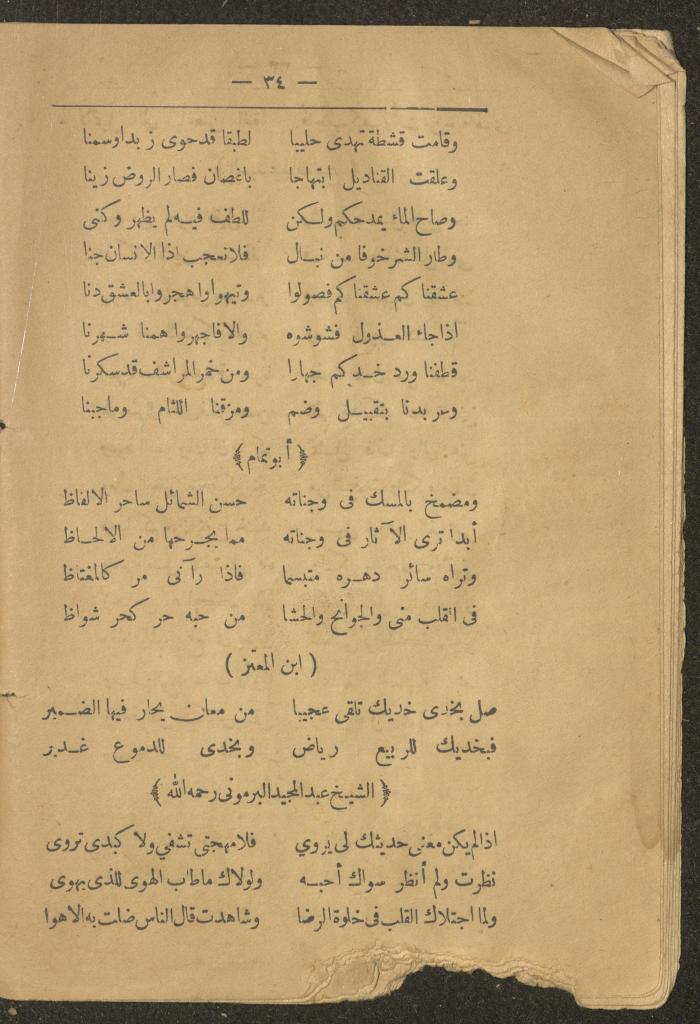 — ٣٤ —
وقامت قشطة تهدى حليبا لطبقا قدحوى زبداوسمنا
وعلقت القناديل ابتهاجا باغصان فصار الروض زينا
وصاح الماء يمدحكم ولكن للطف فيه لم يظهر وكنى
وطار الشعر خوفا من نبال فلا نعجب اذا الانسان جنا
عشقناكم عشقناكم فصولوا وتيهوا واهجروا بالعشق دنا
اذا جاء العذول فشوشوه والا فاجهروا همنا شهرنا
قطفنا ورد خدكم جهارا ومن خمر المراشف قد سكرنا
وسر بدنا بتقبيل وضم ومزقنا اللثام وماجبنا
﴿ أبو تمام ﴾
ومضمخ بالمسك فى وجناته حسن الشمائل ساحر الالفاظ
أبدا ترى الآثار فى وجناته مما يجرحها من الالحاظ
وتراه سائر دهره متبسما فاذا رآنى مر كالمغتاظ
فى القلب منى والجوانح والحشا من حبه حر كحر شواظ
( ابن المعتز )
صل بخدى خديك تلقى عجيبا من معان يحار فيها الضمير
فبخديك للربيع رياض وبخدى للدموع غدير
﴿ الشيخ عبد المجيد البرمونى رحمه الله ﴾
اذالم يكن معنى حديثك لى يروي فلا مهجتى تشفي ولا كبدى تروى
نظرت ولم أنظر سواك أحبه ولولاك ماطاب الهوى للذى يهوى
ولما اجتلاك القلب فى خلوة الرضا وشاهدت قال الناس ضلت به الاهوا